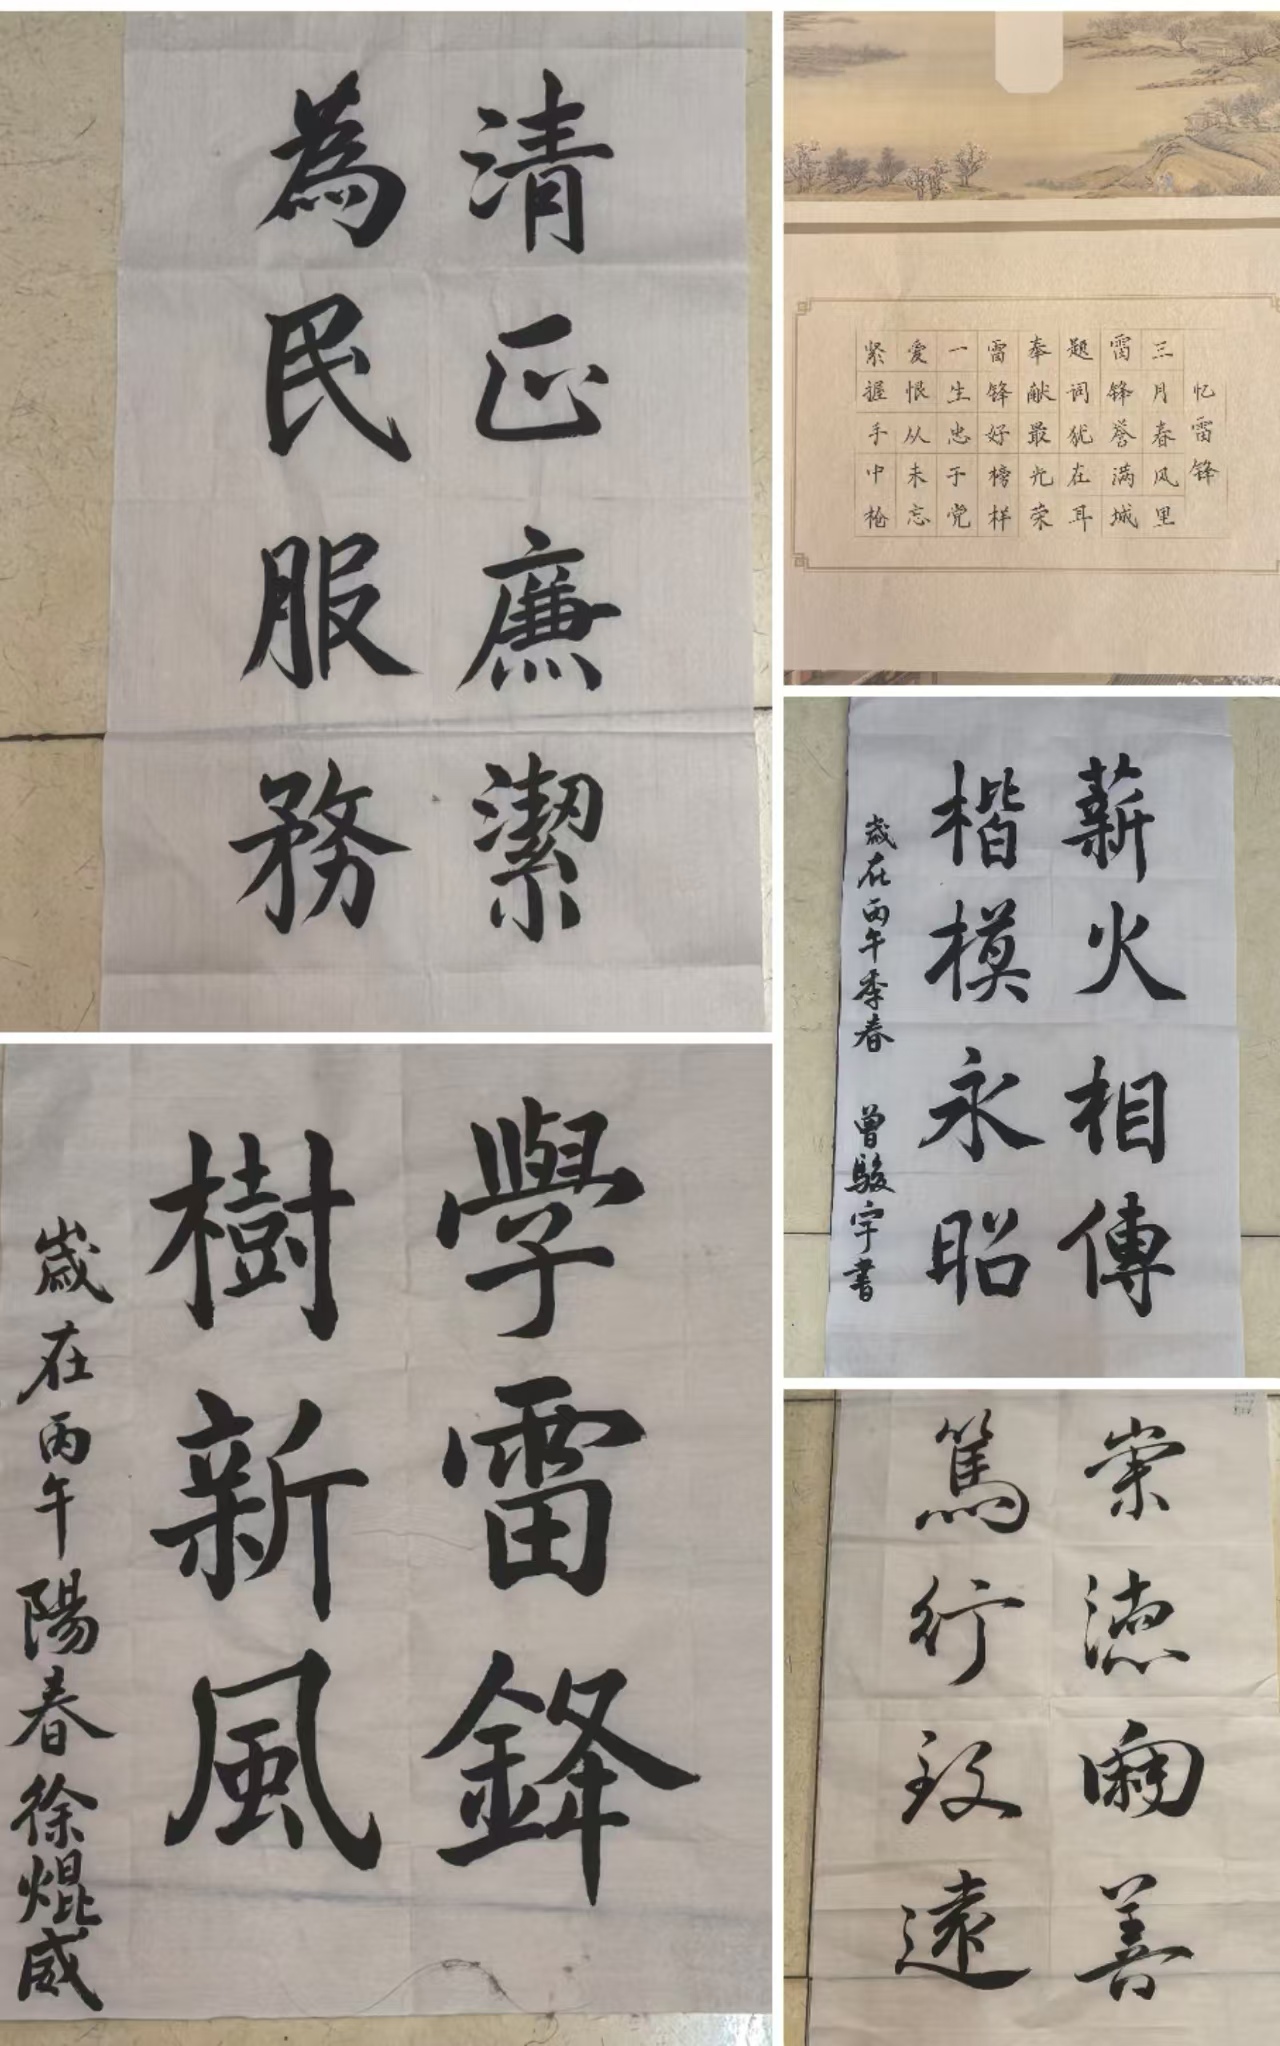 清正廉潔
為民服務
忆雷锋
三月春风里
雷锋誉满城
题词犹在耳
奉献最光荣
雷锋好榜样
一生忠于党
爱恨从未忘
紧握手中枪
薪火相傳
楷模永昭
歲在丙午季春 曾駿宇書
學雷鋒
樹新風
歲在丙午陽春徐焜威
崇德向善
篤行致遠